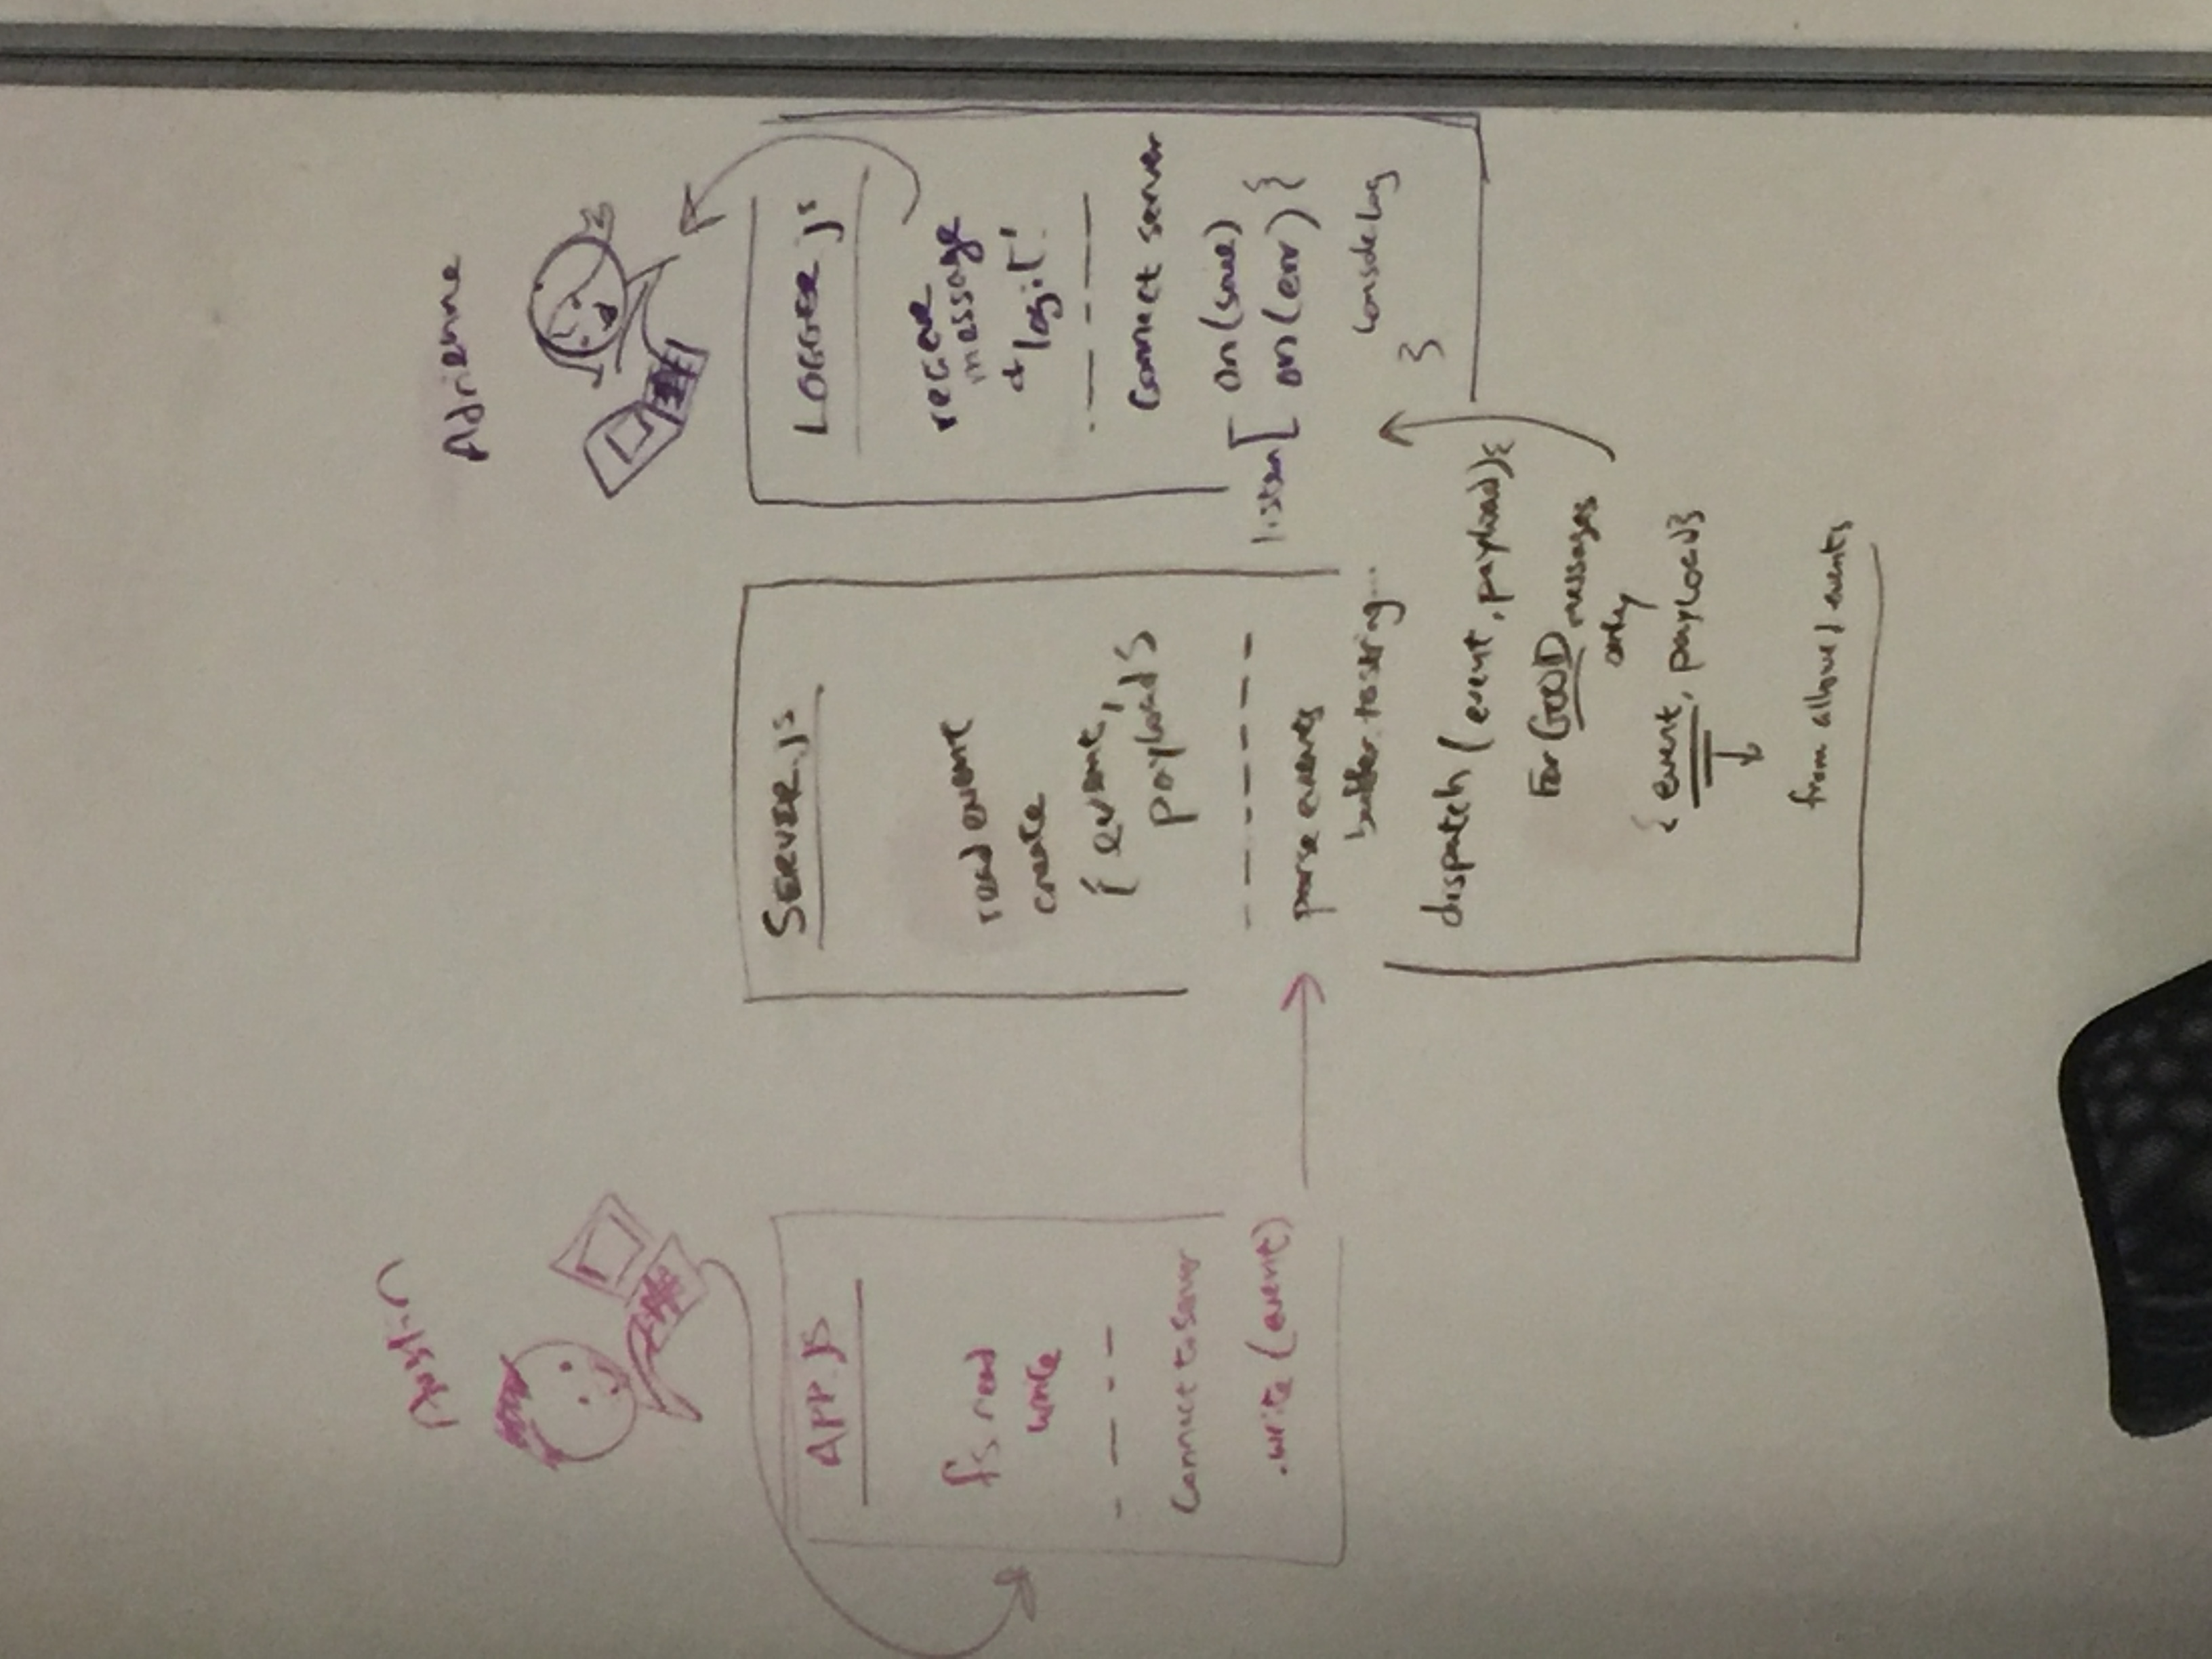 Austin
Adrienne
APP.JS
fs read
write
Connect to server
.write (event)
SERVER.js
read event
create
{ event,
payload }
parse events
buffer.tostring...
dispatch (event, payload){
For GOOD messages
only
{ event, payload}
from allowed events
LOGGER.js
recieve
message
+ "log it"
Connect server
listen
on (save)
on (err) {
console.log
}